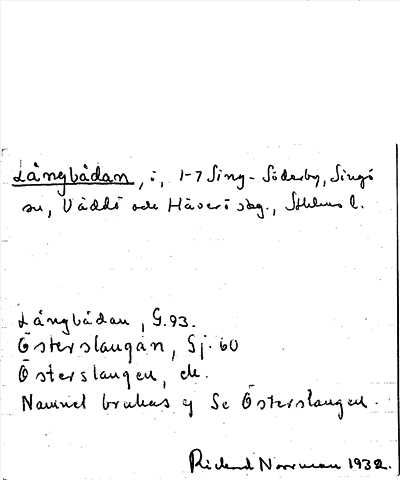 Långbådan, i, 1-7 Sing-Söderby, Singö
sn, Väddö och Häverö skg., Sthlms l.
Långbådan, G.93.
Österslangån, Sj. 60
Österslangen, ek.
Namnet brukas ej Se Österslangen.
Rickard Norrman 1932.